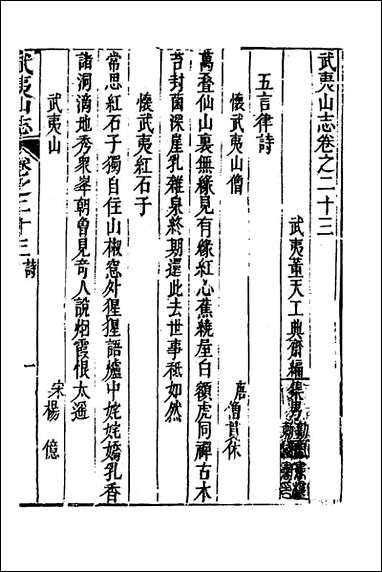 武夷山志卷之二十三
武夷董天工典齋編集男
五言律詩
懷武夷山僧 唐僧貫休
萬叠仙山裏無緣見有緣紅心蕉繞屋白額虎同禪古木
苔封菌深崖乳雜泉終期還此去世事祗如然
懷武夷紅石子
常思紅石子獨自住山椒窓外猩猩語爐中姹姹嬌乳香
諸洞滴地秀眾峯朝曾見奇人說烟霞恨太遥
武夷山 宋楊億
武夷山志 卷之二十三 詩 一